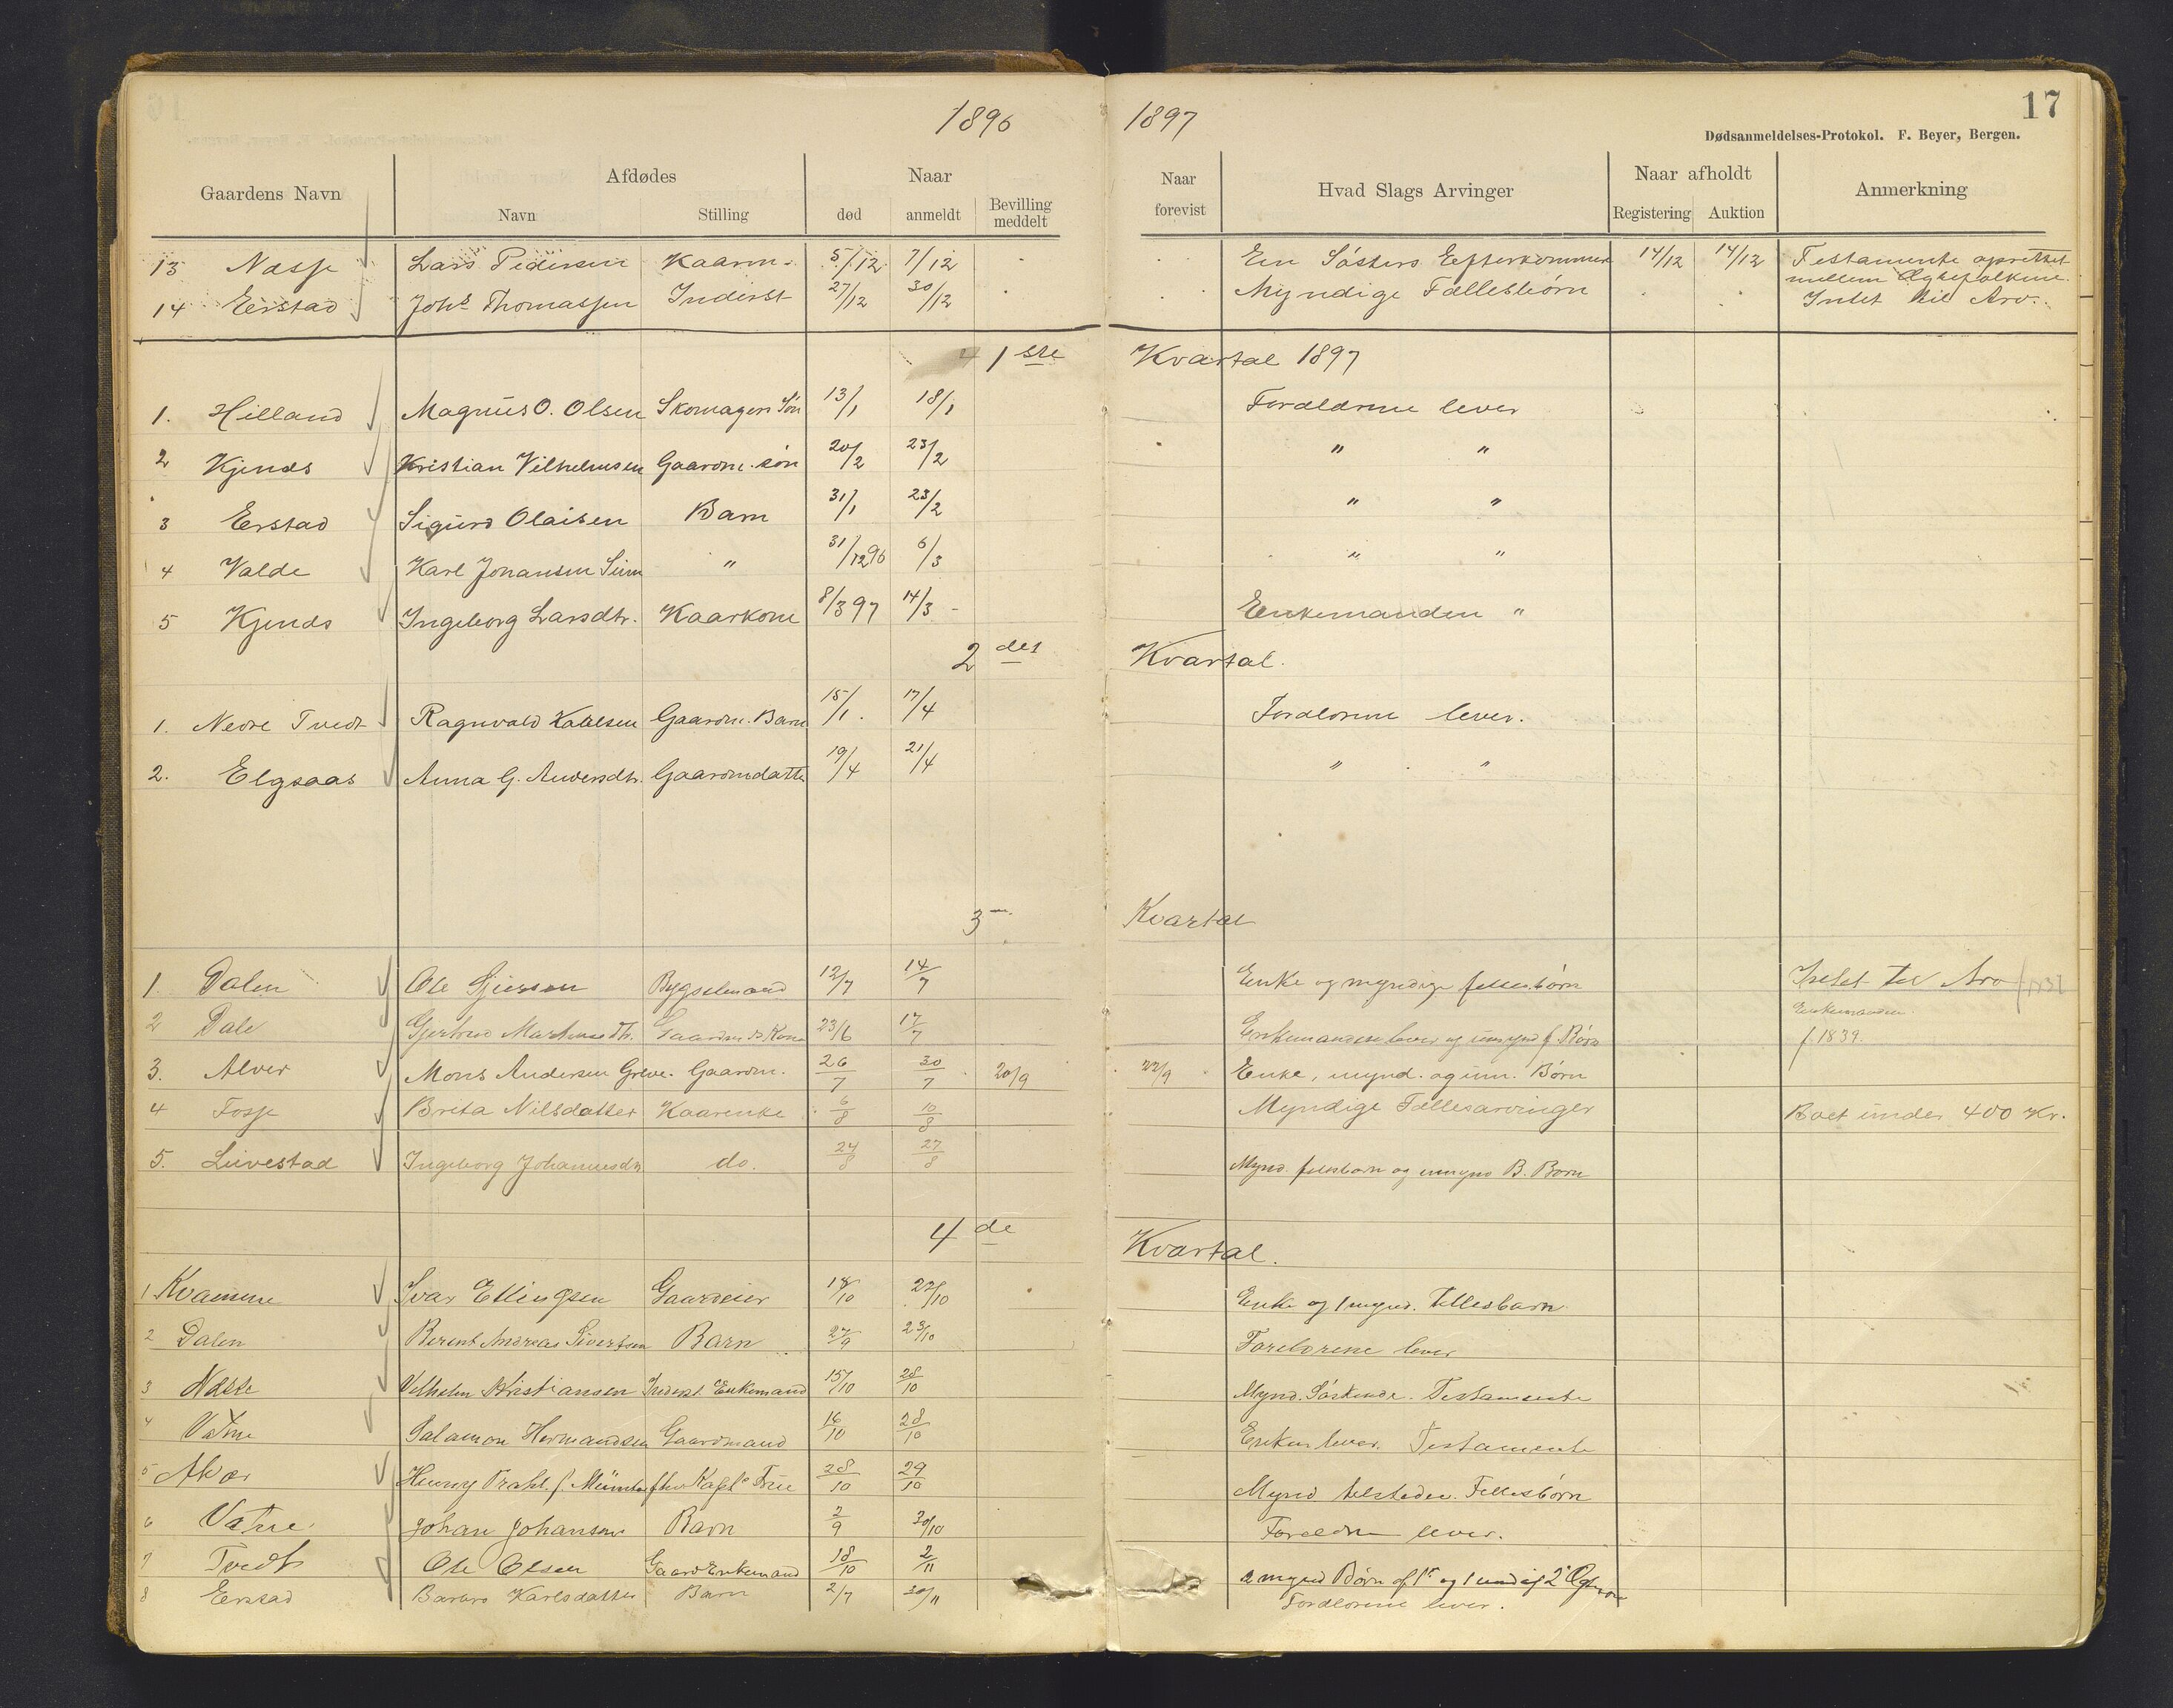 1896 1897 17
Dødsanmeldelses-Protokol. F. Beyer, Bergen.
Gaardens Navn Afdødes Naar Naar Hvad Slags Arvinger Naar afholdt Anmerkning
Navn Stilling død anmeldt Bevilling meddelt forevist Registering Auktion
13 Næsse Lars Pedersen Kaarm. 5/12 7/12 En Søsters Efterkommere 14/12 14/12 Testamente oprettet
mellem Ægtefolkene.
14 Eerstad Johs Thomassen Inderst 27/12 30/12 Myndige Fællesbørn Intet til Arv.
1ste Kvartal 1897
1. Hilland Magnus O. Olsen Skomagers Søn 13/1 18/1 Forældrene lever
2 Kjends Kristian Vilhelmsen Gaardm. søn 20/2 23/2 " "
3 Eerstad Sigurd Olaisen Barn 31/1 23/2 " "
4 Valde Karl Johansen Seim " 31/12 96 6/3 " "
5 Kjends Ingeborg Larsdtr. Kaarkone 8/3 97 14/3 - Enkemanden "
2det Kvartal.
1. Nedre Tvedt Ragnvald Karlsen Gaardm. Barn 15/1. 17/4 Forældrene lever.
2. Elgsaas Anna G. Andersdtr. Gaardmdatter 19/4 21/4 " "
3 Kvartal
1 Dalen Ole Bygselmand 12/7 14/7 Enke og myndige fellesbørn Intet til Arv
2 Dale Gjertrud Martinusdtr. Gaardm ds Kone 23/6 17/7 Enkemanden lever og umynd f. Børn Enkemanden
f. 1839.
3. Alver Mons Andersen Greve. Gaardm. 26/7 30/7 20/9 22/9 Enke, mynd. og um. Børn
4 Fosse Brita Nilsdatter Kaarenke 6/8 10/8 Myndige Fællesarvinger Boet under 400 Kr.
5. Leivestad Ingeborg Johannesdtr do. 24/8 27/8 Mynd. fellesbarn og umynd B. Børn
4de Kvartal.
1 Kvamme Ivar Ellingsen Gaardeier 18/10 22/10 Enke og 1 mynd. Fellesbarn
2 Dalen Berent Andreas Sivertsen Barn 27/9 23/10 Foreldrene lever
3 Næsse Vilhelm Kristiansen Inderst Enkemand 15/10 28/10 Mynd. Søskende. Testamente
4 Vatne Salamon Hermandsen Gaardmand 16/10 28/10 Enken lever. Testamente
5 Alver Henny f. Münster Kapt. Frue 28/10 29/10 Mynd tilstede. Fellesbørn
6 Vatne Johan Johansen Barn 2/9 30/10 Foreldrene lever.
7 Tvedt Ole Olsen Gaard Enkemand 18/10 2/11 2 mynd Børn af 1ste og 1 umd af 2
8 Eerstad Barbro Karlsdatter Barn 2/7 20/11 Forældrene lever.